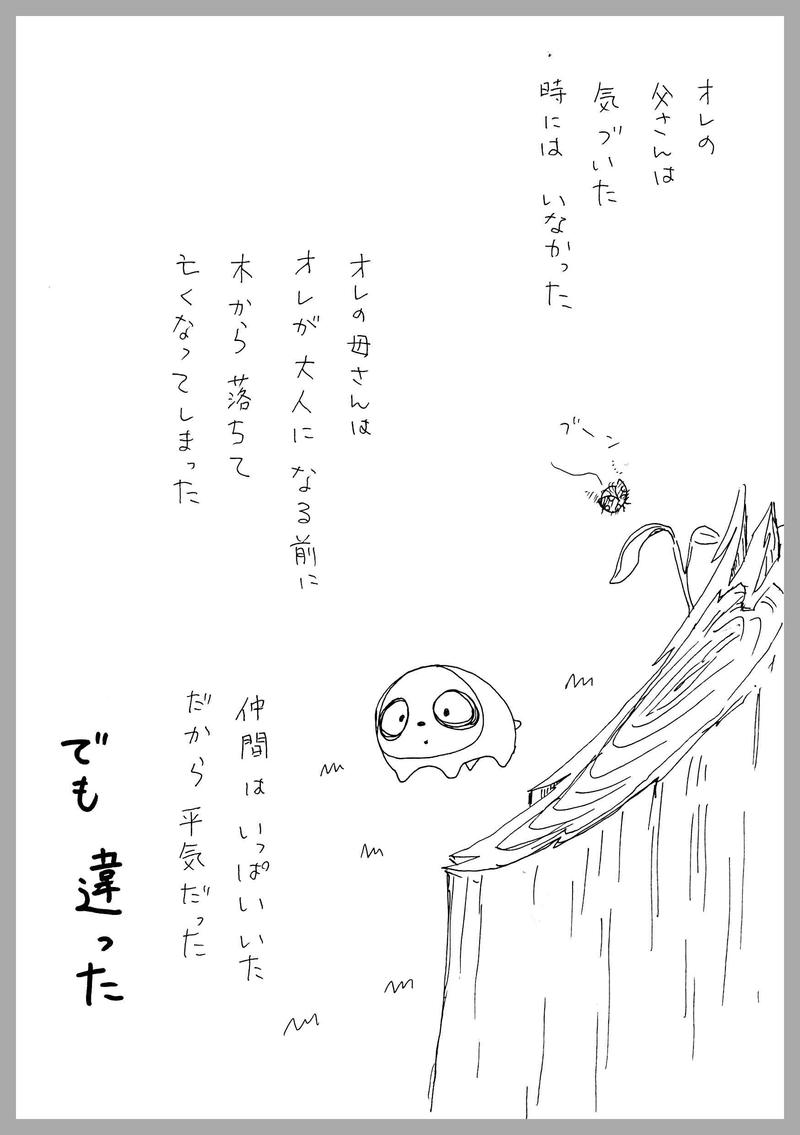 オレの
父さんは
気づいた
時には いなかった
オレの母さんは
オレが 大人に なる前に
木から 落ちて
亡くなってしまった
ブーン
仲間は いっぱいいた
だから 平気だった
でも 違った